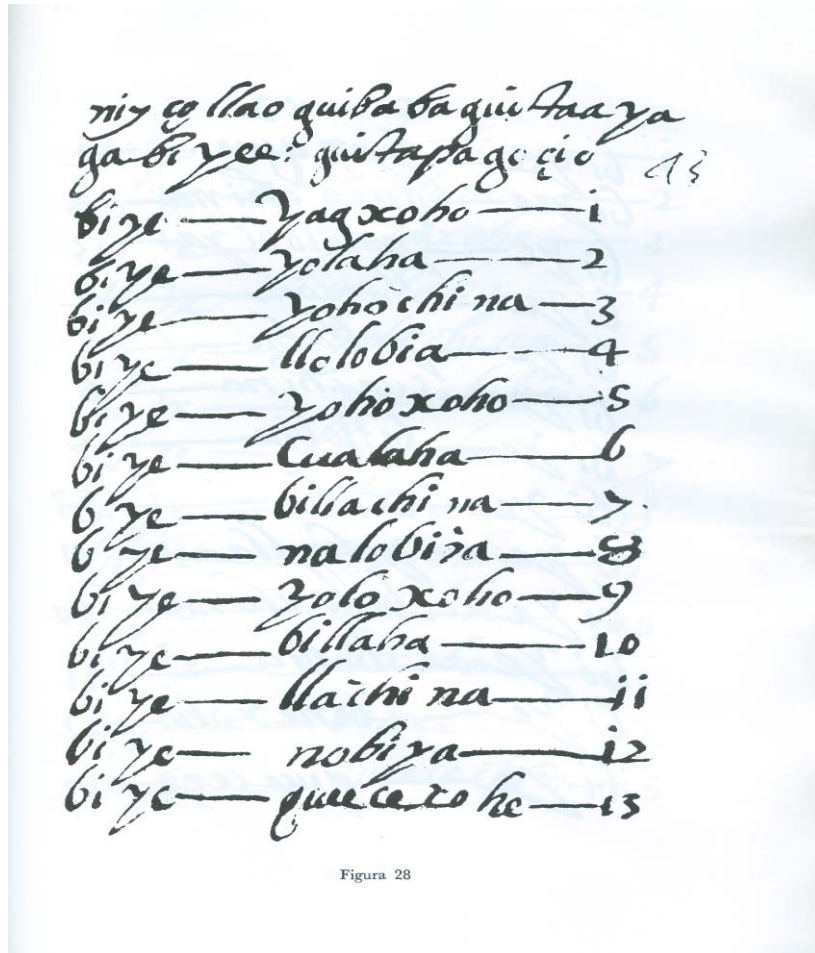 niy co llao quiba ba quitaa ya
ga bi yee: quitapa go cio 13
bi ye — yagxoho — 1
bi ye — yolaha — 2
bi ye — yohochi na — 3
bi ye — llolobia — 4
bi ye — yohoxoho — 5
bi ye — cualaha — 6
bi ye — billachi na — 7
bi ye — nalobiya — 8
bi ye — yoloxoho — 9
bi ye — billaha — 10
bi ye — llachi na — 11
bi ye — nobiya — 12
bi ye — queecexohe — 13
Figura 28